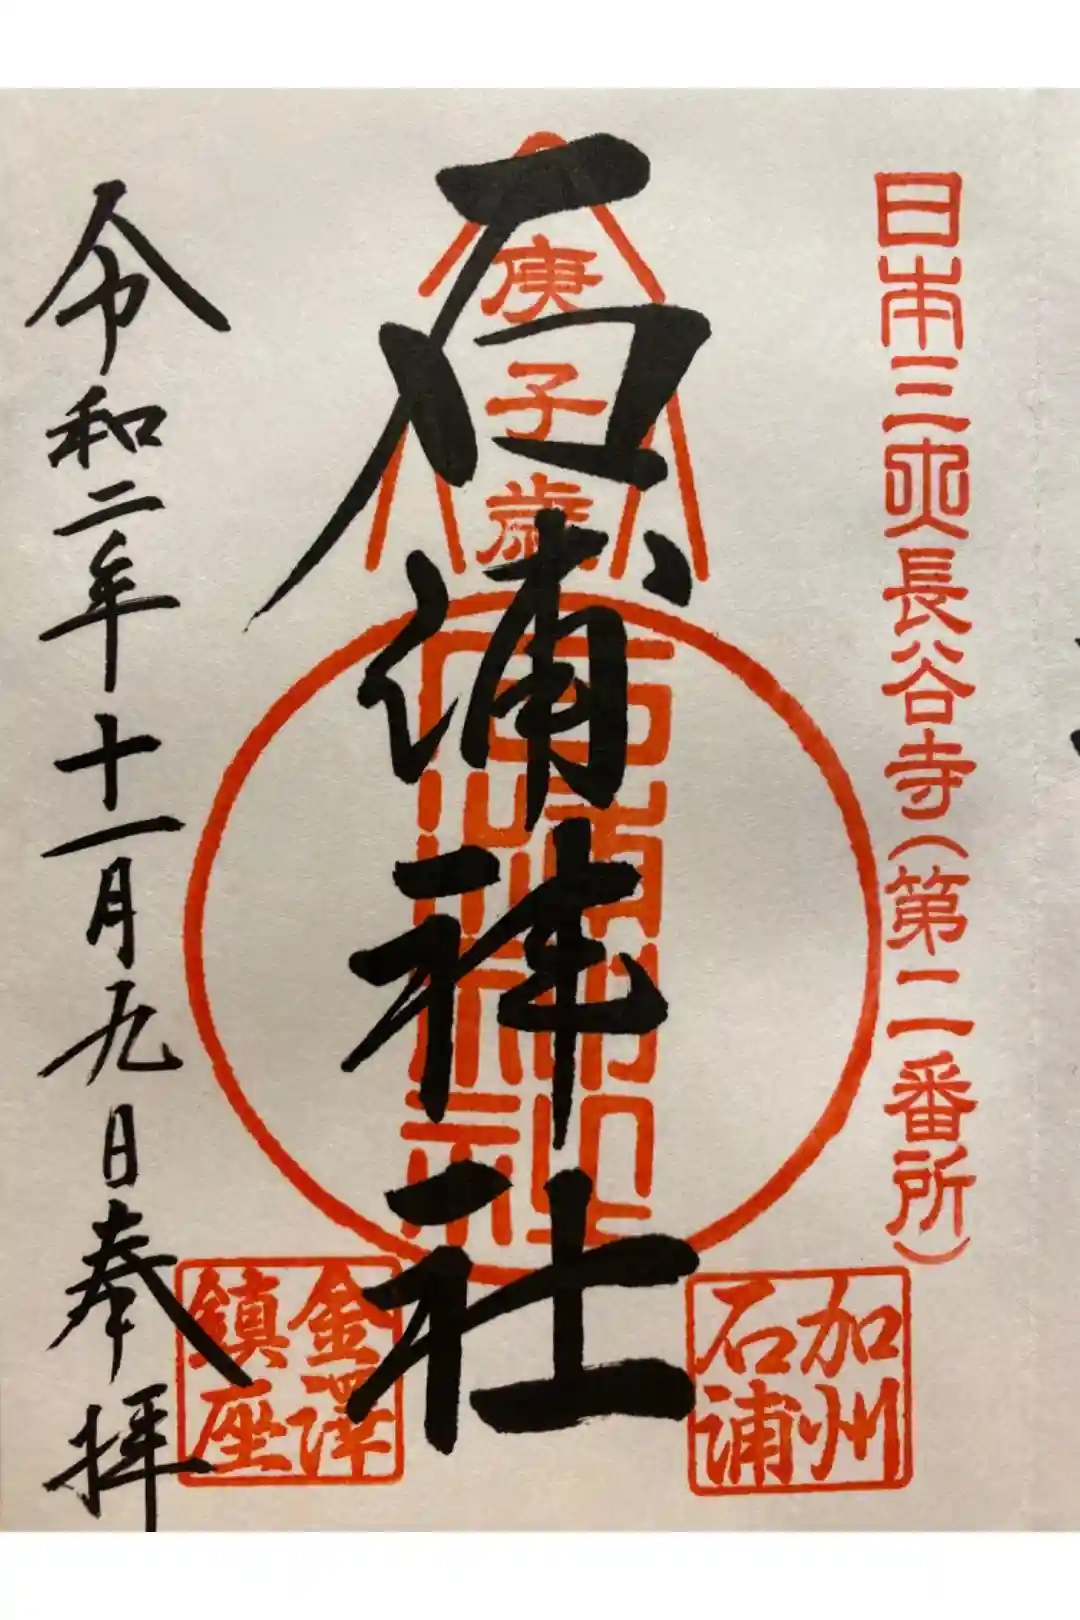 日本三央長谷寺(第二番所)
加州
石浦
庚子歳
石浦神社
金澤
鎮座
令和二年十一月九日奉拝